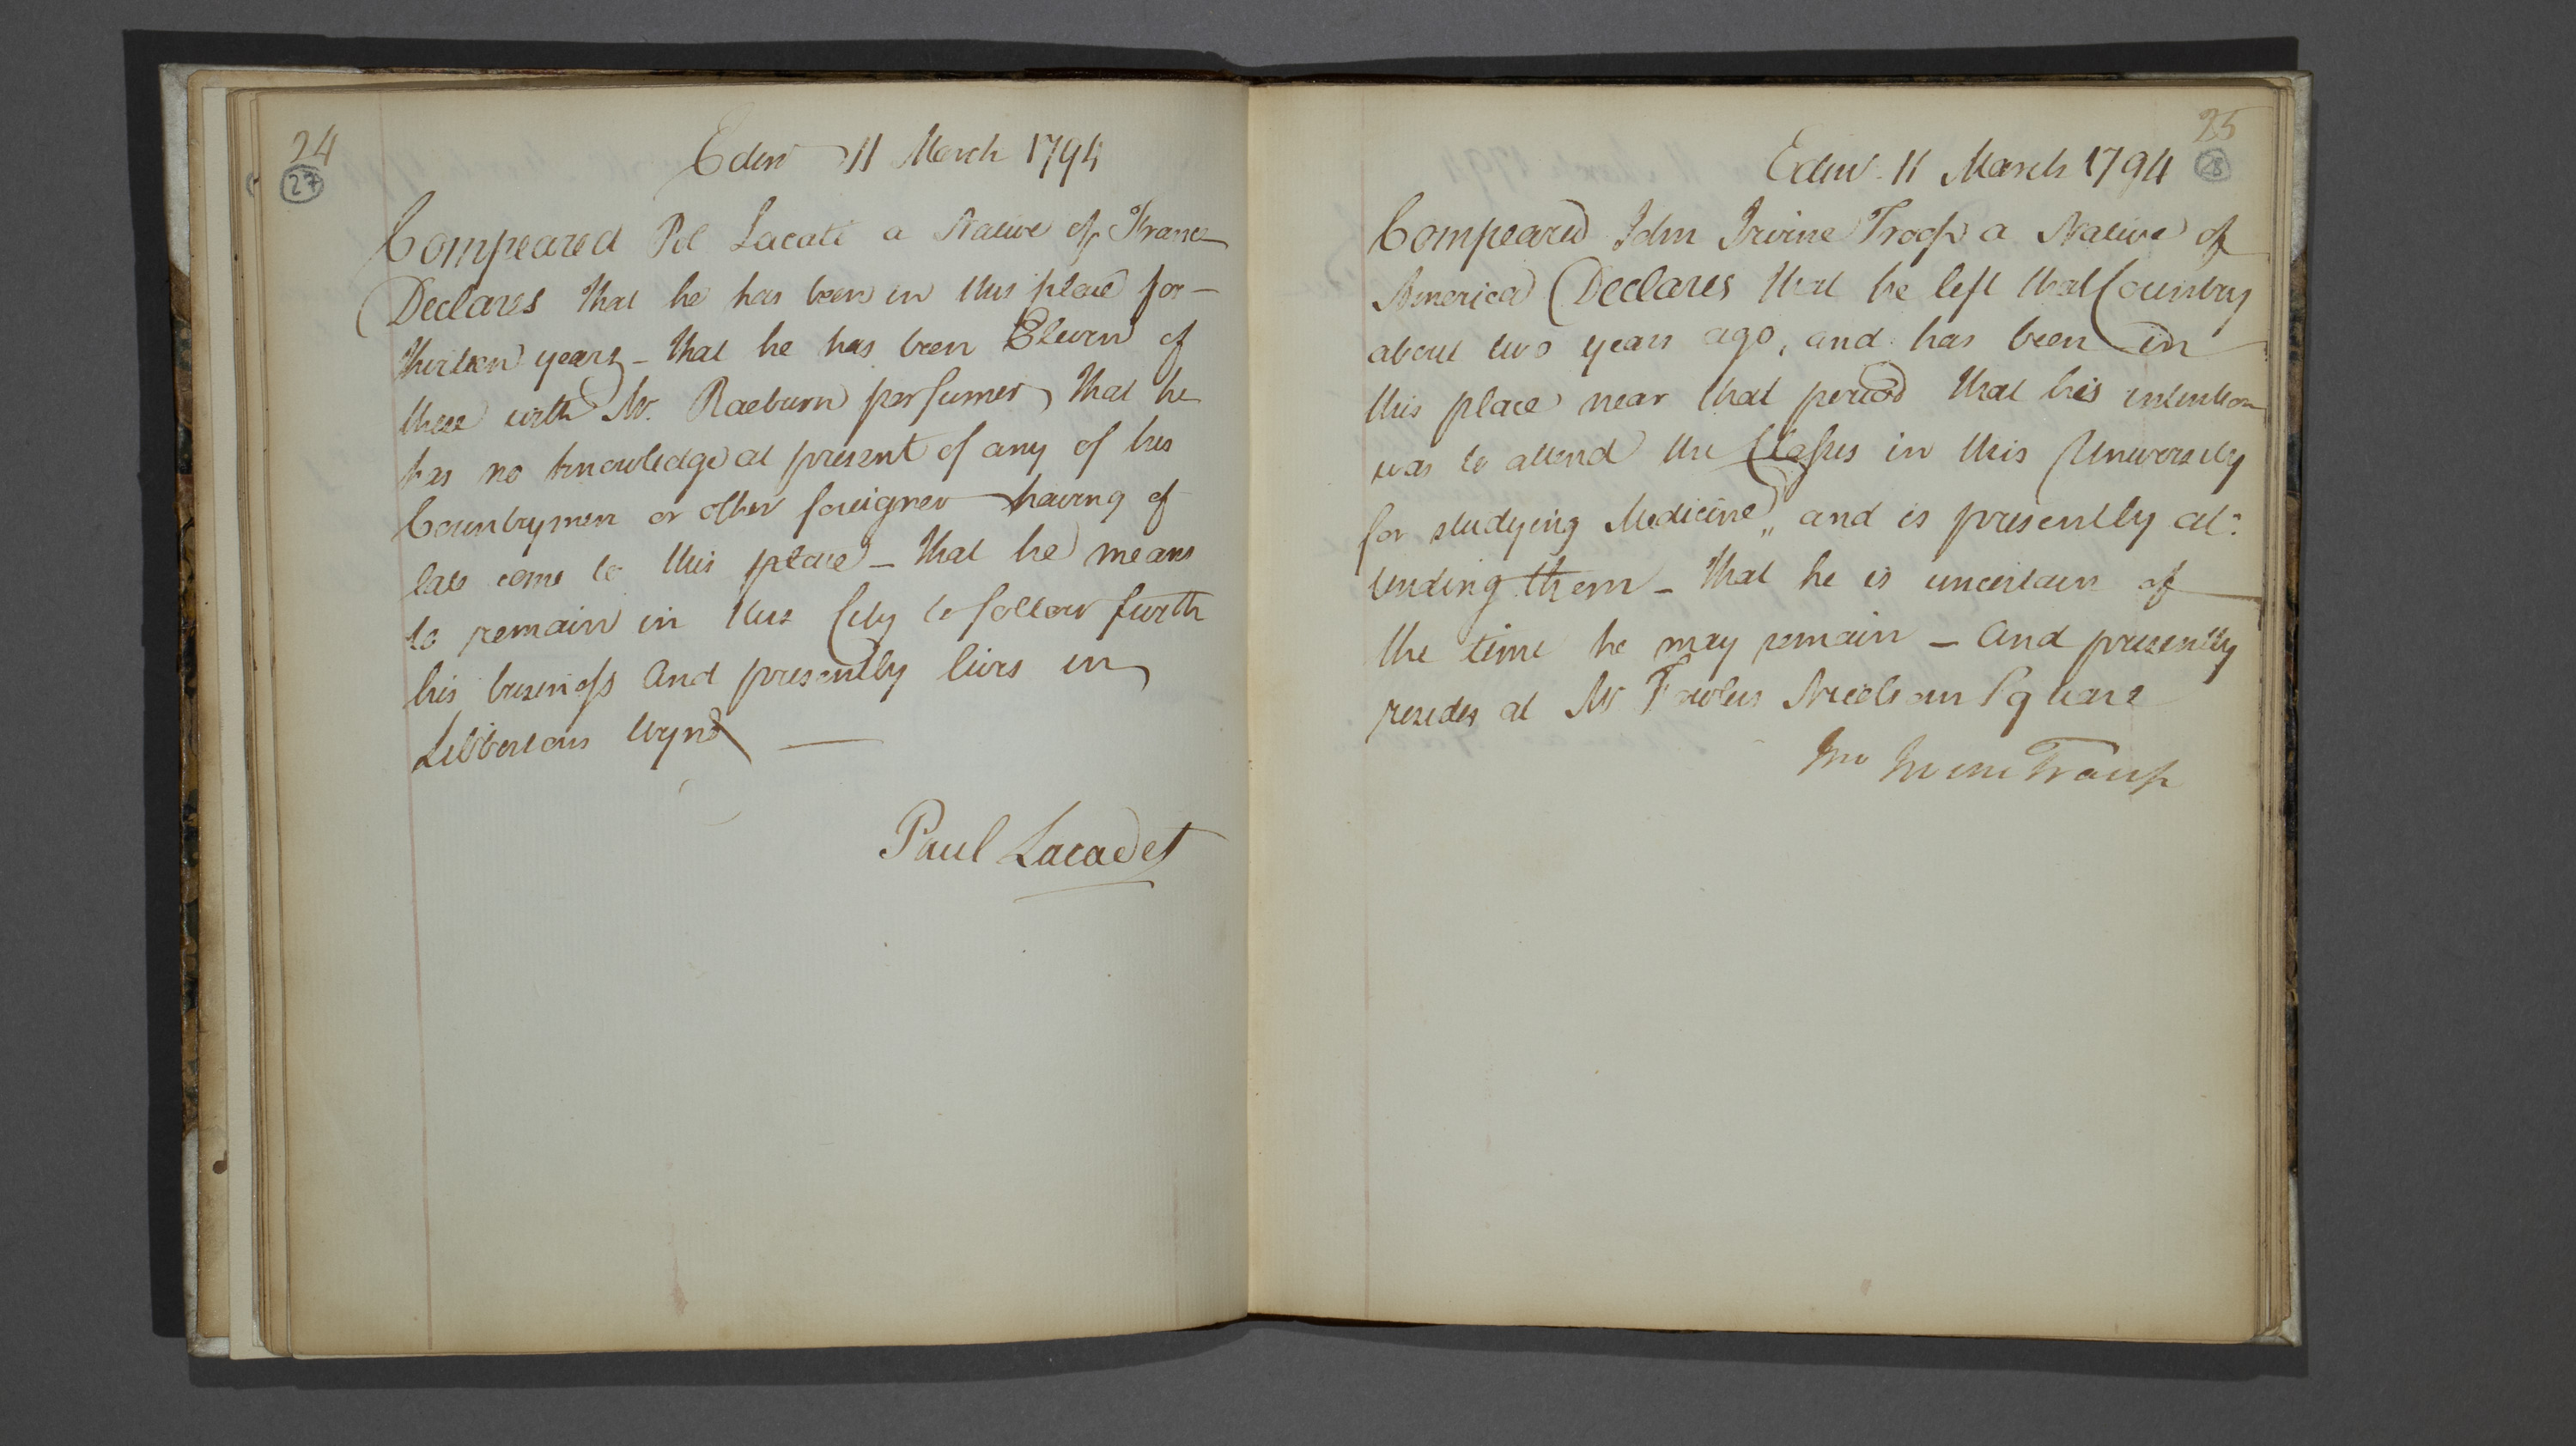 24
27
Edinr 11 March 1794
Compeared Pol Lacate a Native of France
Declares that he has been in this place for
thirteen years - that he has been Eleven of
these with Mr. Raeburn perfumer, that he
has no knowledge at present of any of his
Countrymen or other foreigner having of
late come to this place - that he means
to remain in this City to follow furth
his business and presently lives in
Libbertons Wynd -
Paul Lacadet
25
28
Edinr. 11 March 1794
Compeared John Irvine Troop a Native of
America Declares that he left that Country
about two years ago, and has been in
this place near that period that his intention
was to attend the Classes in this University
for studying Medicine, and is presently at:
tending them - that he is uncertain of
the time he may remain - and presently
resides at Mr Fowlers Nicolson Square
Jno Irvine Troup